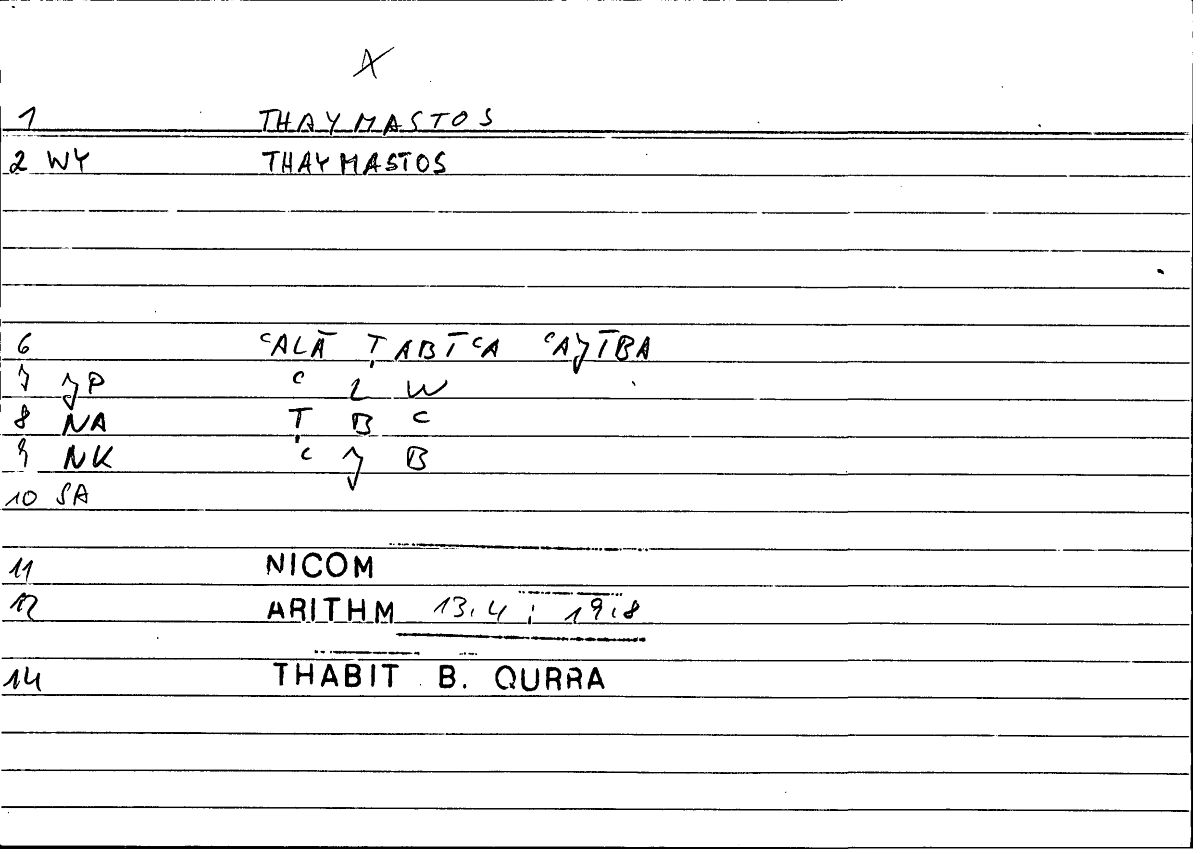 A
1 THAYMASTOS
2 WY THAYMASTOS
6 ʿALĀ ṬABĪʿA ʿAJĪBA
7 JP ʿ L W
8 NA Ṭ B ʿ
9 NK ʿ J B
10 SA
11 NICOM
12 ARITHM 13.4 ; 19.8
14 THABIT B. QURRA